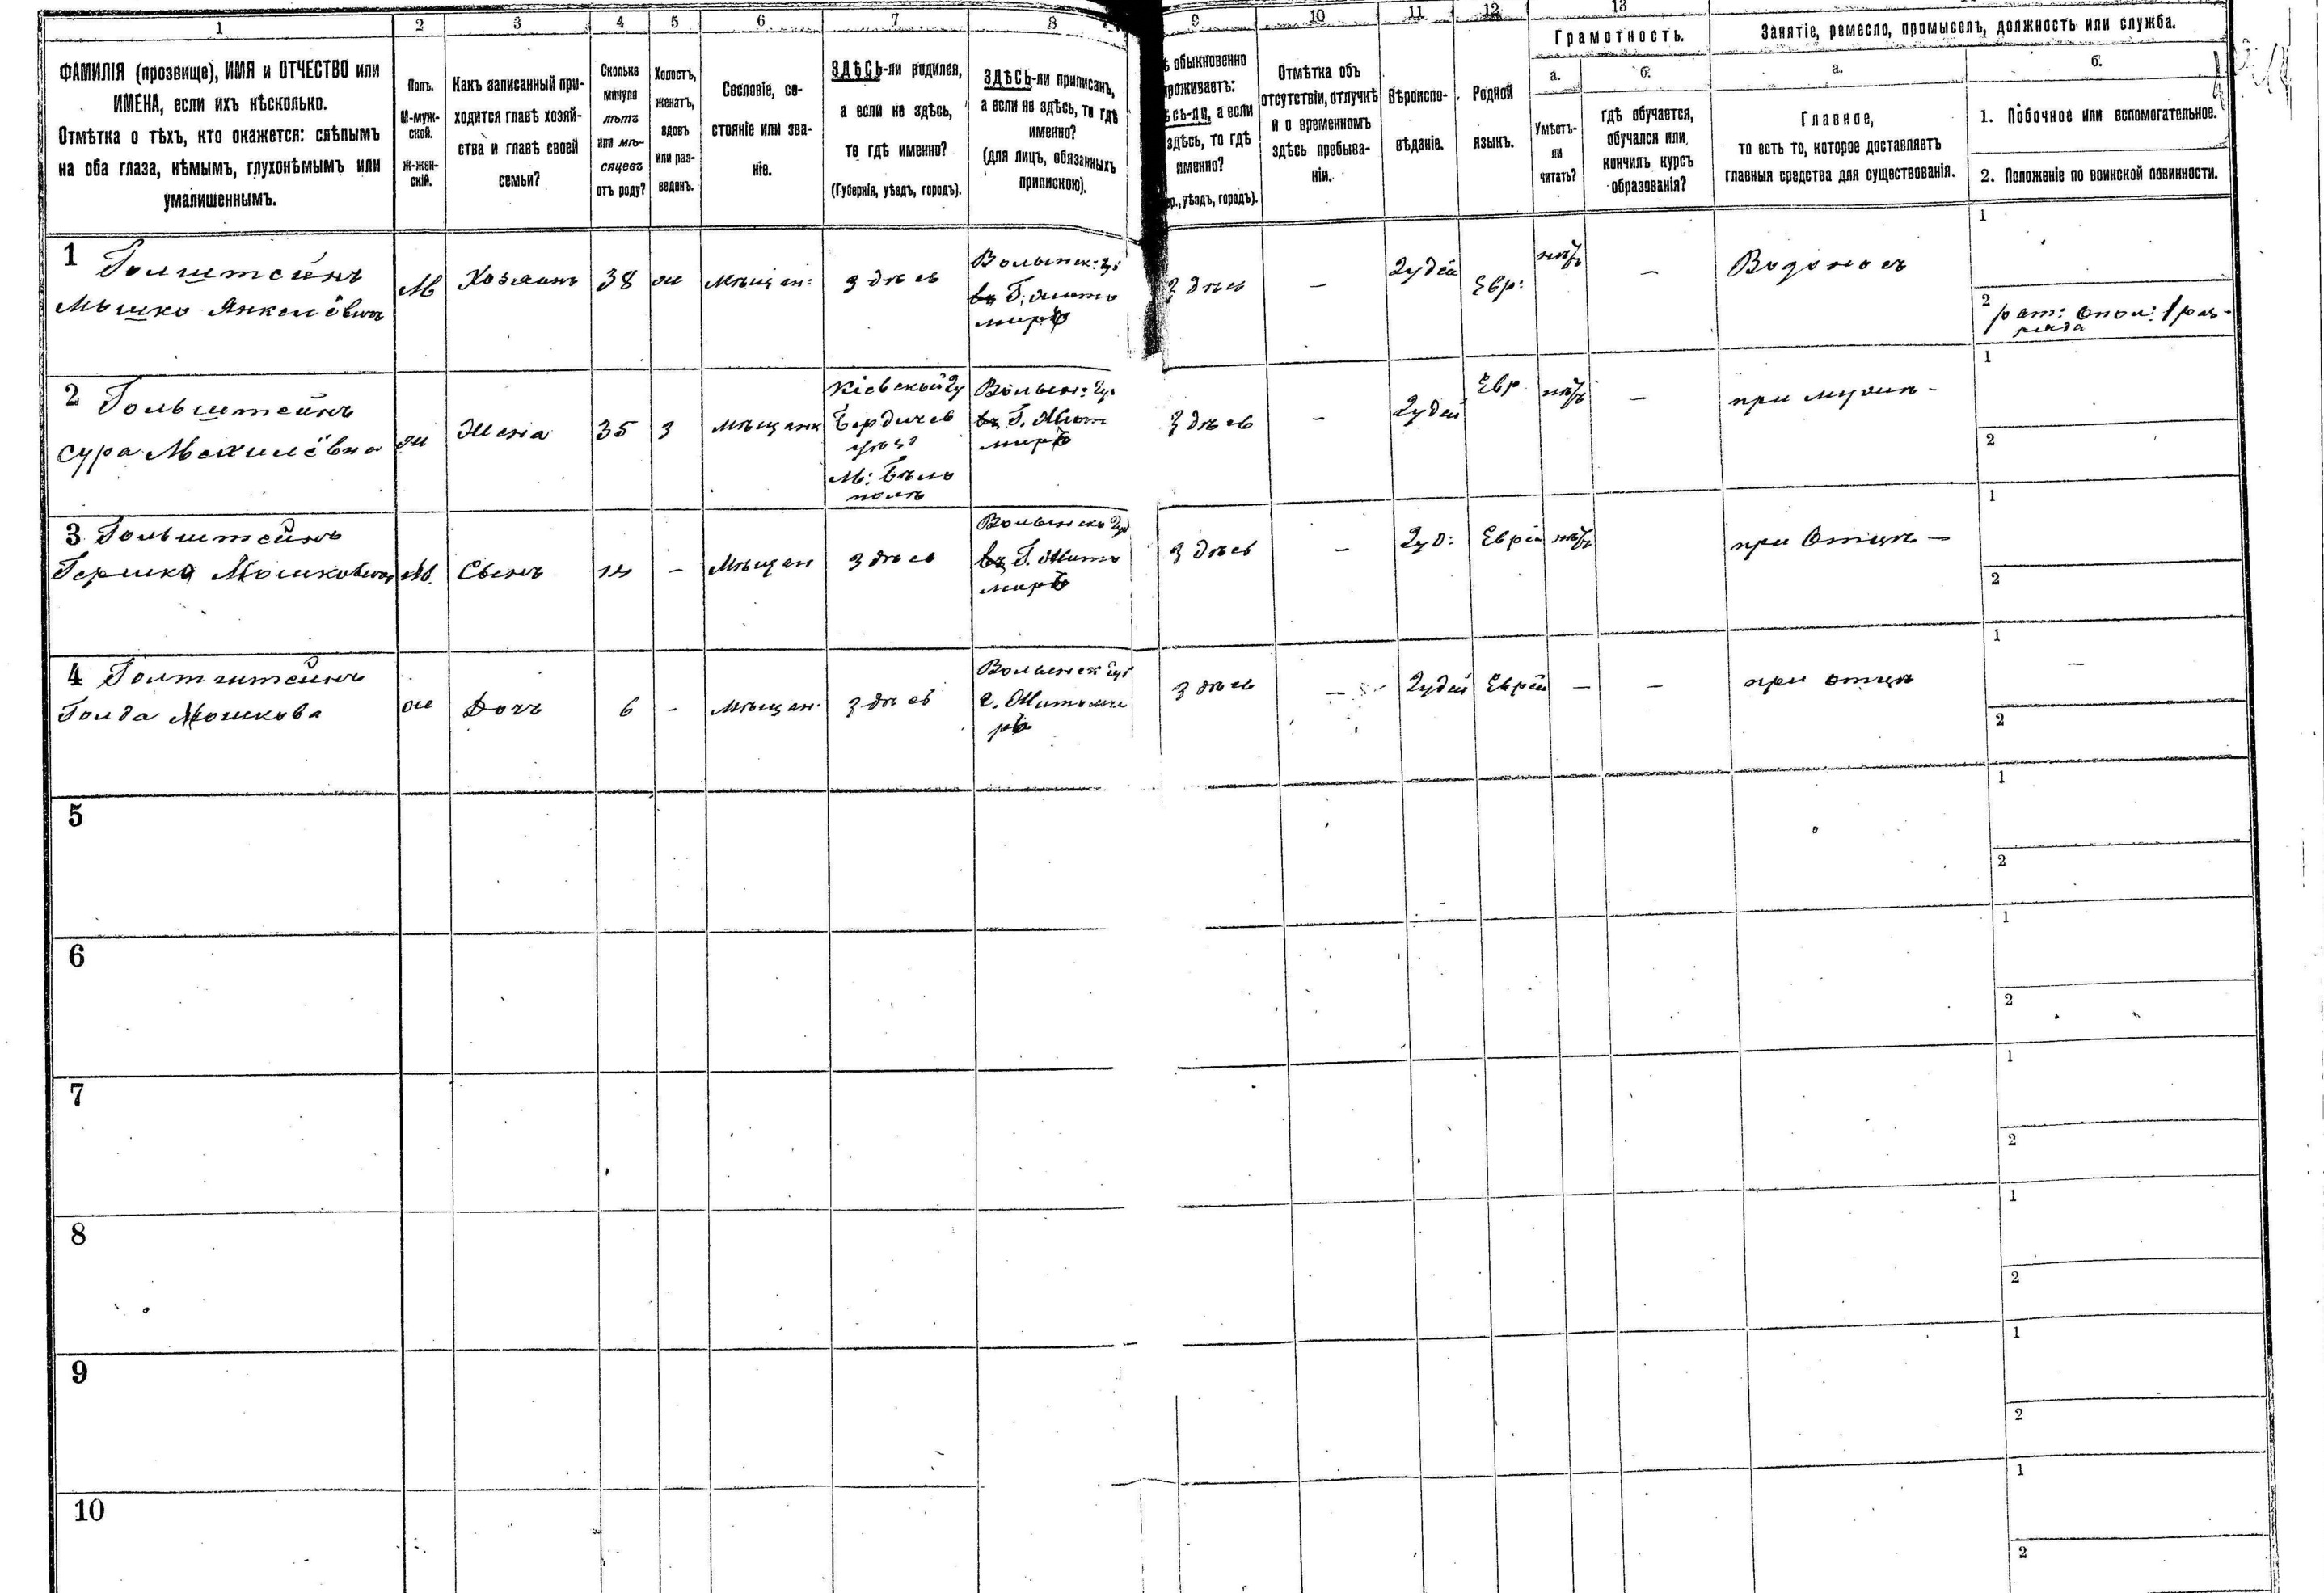 1 2 3 4 5 6 7 8 9 10 11 12 13
ФАМИЛІЯ (прозвище), ИМЯ и ОТЧЕСТВО или
ИМЕНА, если ихъ нѣсколько.
Отмѣтка о тѣхъ, кто окажется: слѣпымъ
на оба глаза, нѣмымъ, глухонѣмымъ или
умалишеннымъ.
Полъ.
М-муж-
ской.
Ж-жен-
скій.
Какъ записанный при-
ходится главѣ хозяй-
ства и главѣ своей
семьи?
Сколько
минуло
лѣтъ
или мѣ-
сяцевъ
отъ роду?
Холостъ,
женатъ,
вдовъ
или раз-
веденъ.
Сословіе, со-
стояніе или зва-
ніе.
ЗДѢСЬ-ли родился,
а если не здѣсь,
то гдѣ именно?
(Губернія, уѣздъ, городъ).
ЗДѢСЬ-ли приписанъ,
а если не здѣсь, то гдѣ
именно?
(для лицъ, обязанныхъ
припискою).
ѣ обыкновенно
проживаетъ:
ѣсь-ли, а если
здѣсь, то гдѣ
именно?
р., уѣздъ, городъ).
Отмѣтка объ
отсутствіи, отлучкѣ
и о временномъ
здѣсь пребыва-
ніи.
Вѣроиспо-
вѣданіе.
Родной
языкъ.
Грамотность.
а.
Умѣетъ-
ли
читать?
б.
гдѣ обучается,
обучался или
кончилъ курсъ
образованія?
Занятіе, ремесло, промыселъ, должность или служба.
а.
Главное,
то есть то, которое доставляетъ
главныя средства для существованія.
б.
1. Побочное или вспомогательное.
2. Положеніе по воинской повинности.
1
Голштейнъ
Мышко Янкелёвичъ
М
Хозяинъ
38
ж
мѣщан:
здѣсь
Волынск: гу
въ Г. Жито
мирѣ
здѣсь
—
Іудей
Евр:
нѣтъ
—
Водоносъ
1
2
рат: опол: 1 раз-
ряда
2
Гольштейнъ
Сура Мехилёвна
ж
Жена
35
з
мѣщанк
Кіевской гу
Бердичев
уѣзд
М: Бѣло
поле
Волын: гу
въ Г. Жит
мирѣ
здѣсь
—
Іудей
Евр
нѣтъ
—
при мужѣ -
1
2
3
Гольштейнъ
Гершко Мошковичъ
М
Сынъ
14
-
Мѣщан
здѣсь
Волынск гу
въ Г. Жито
мирѣ
здѣсь
—
Іуд:
Еврей
нѣтъ
при Отцѣ —
1
2
4
Голтштейнъ
Голда Мошкова
ж
Дочь
6
-
мѣщан.
здѣсь
Волынск гу
г. Житоми
рѣ
здѣсь
—
Іудей
Еврей
—
—
при отцѣ
1
—
2
5
1
2
6
1
2
7
1
2
8
1
2
9
1
2
10
1
2